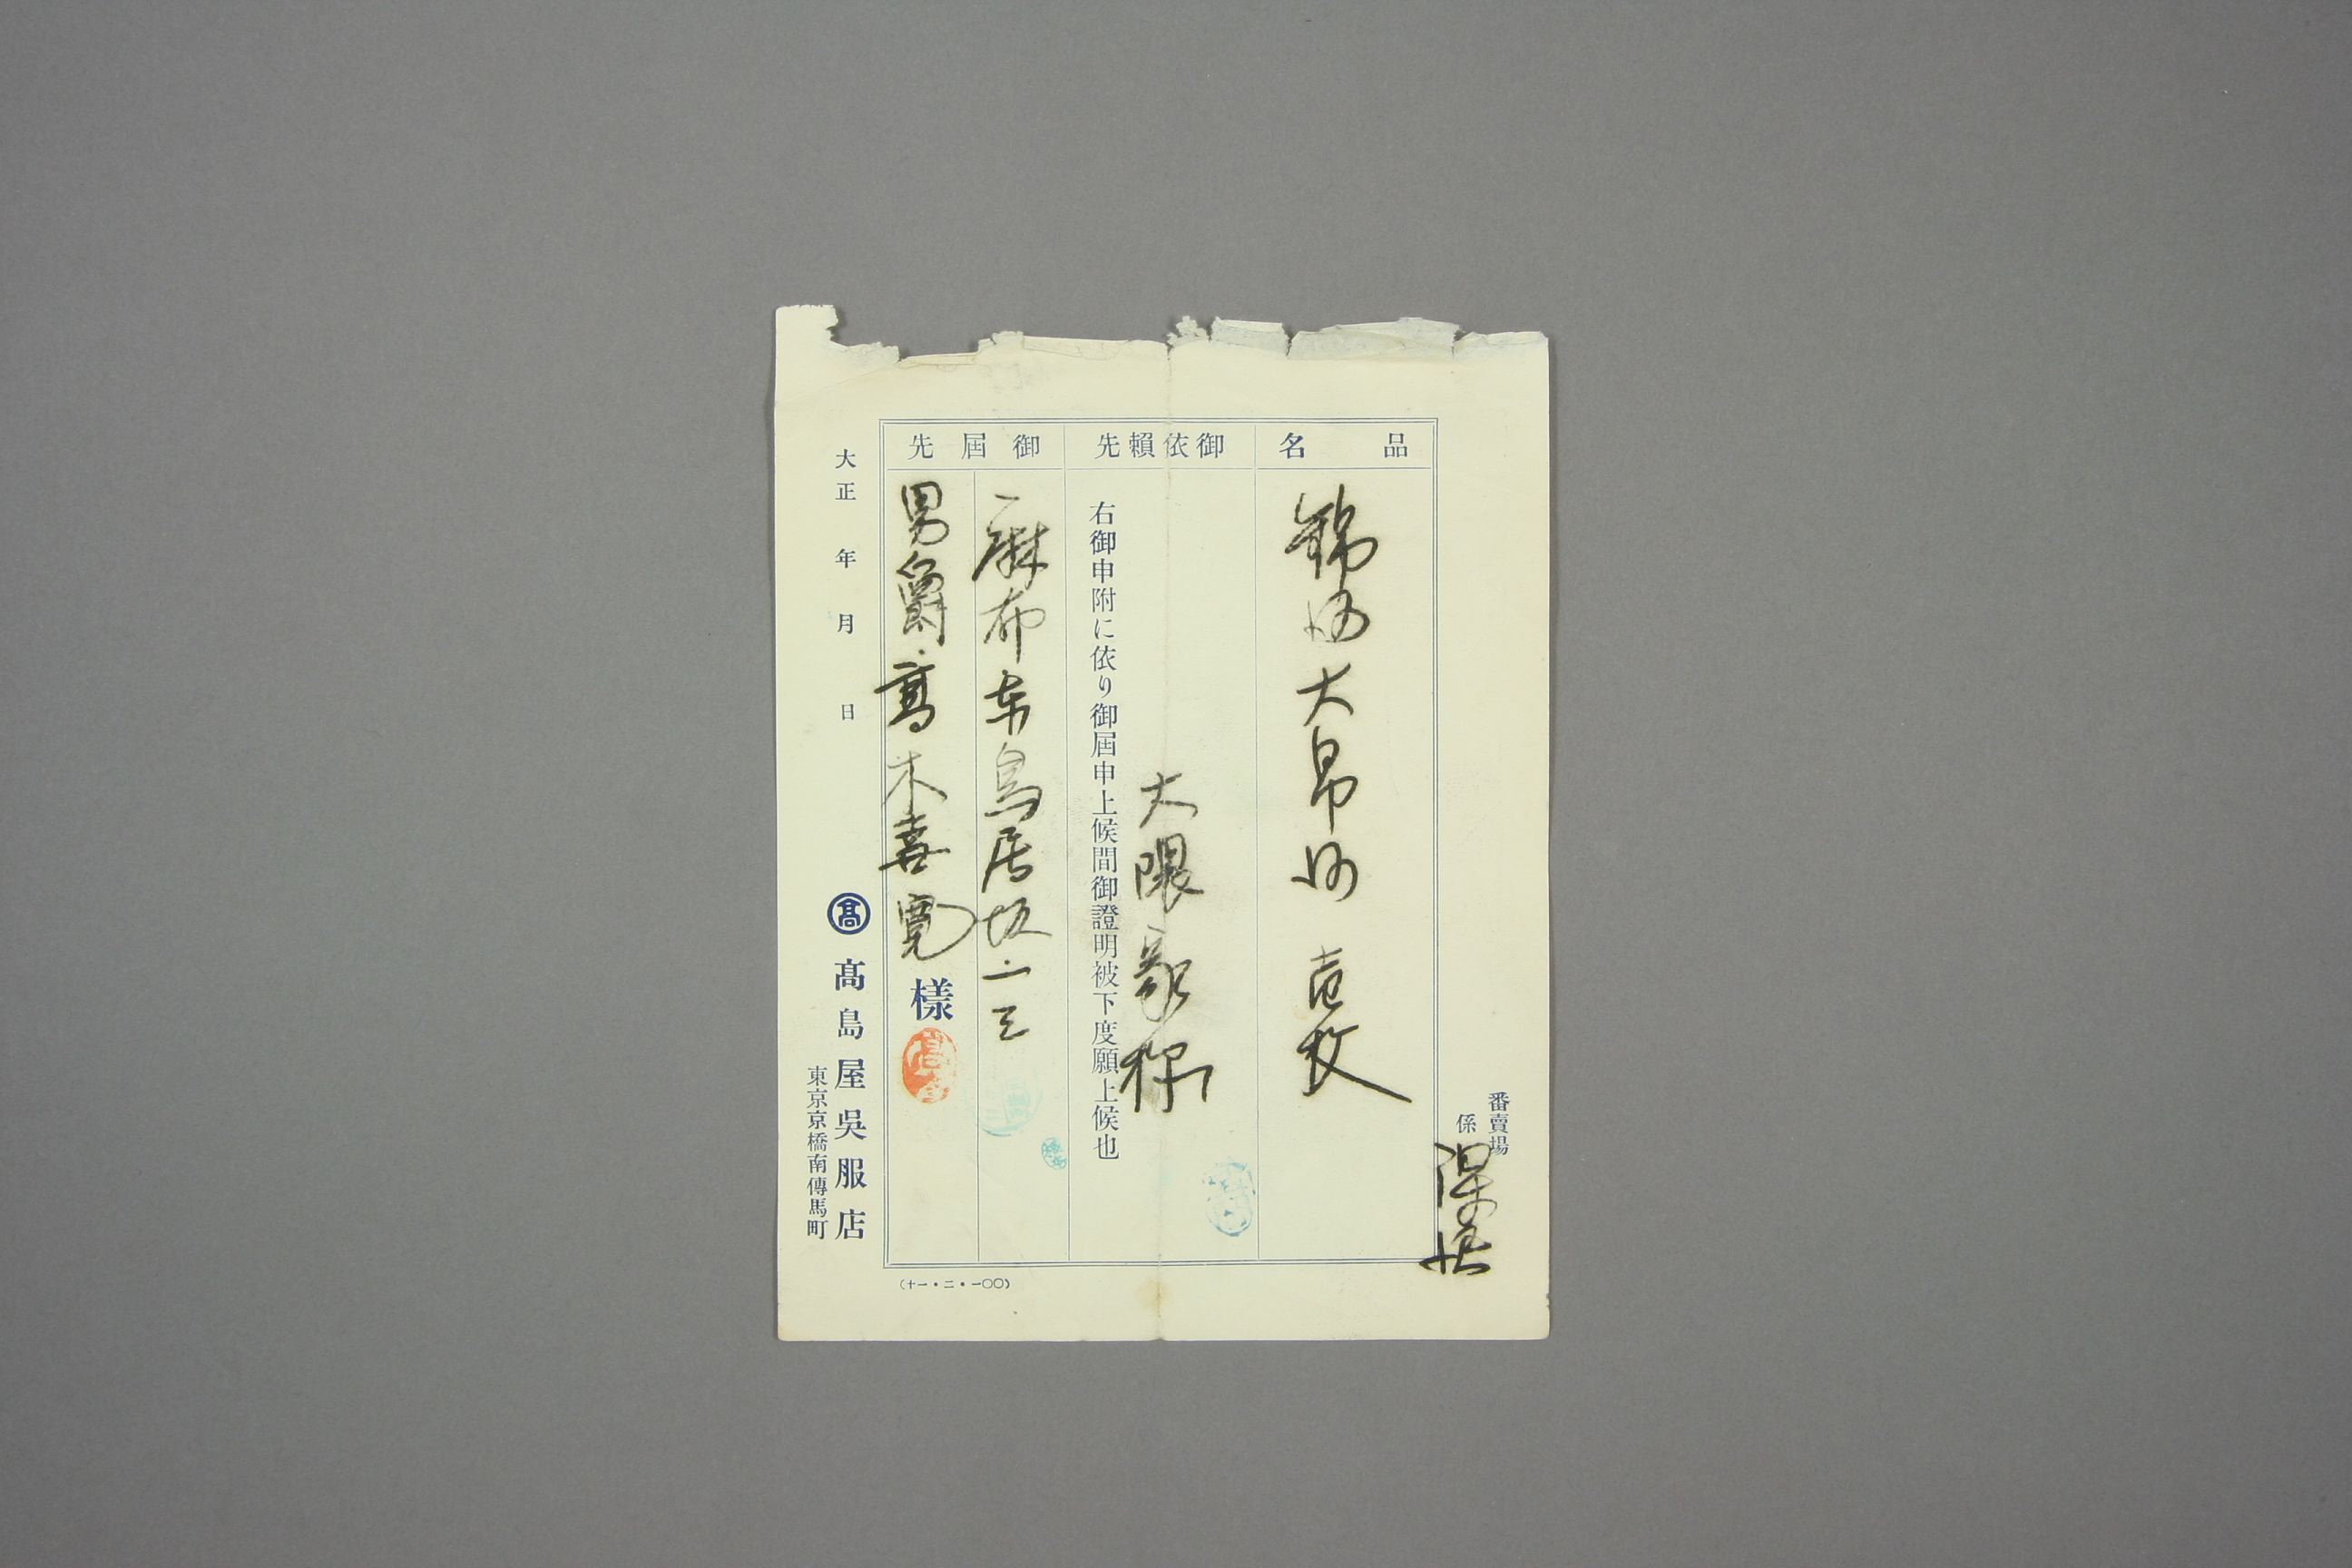 番賣場
係
品名
錦紗大帛紗 壱枚
御依賴先
大隈家様
右御申附に依り御屆申上候間御證明被下度願上候也
御屆先
麻布東鳥居坂二三
男爵高木喜寛
樣
大正 年 月 日
髙
髙島屋吳服店
東京京橋南傳馬町
(十一・二・一〇〇)